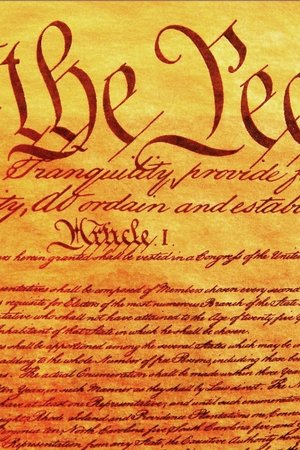 the Peo
Tranquility, provide f
ity, do ordain and establ
Article. I.
ers herein granted shall be vested in a Congress of the Unite
entatives shall be composed of Members chosen every secon
requisite for Electors of the most numerous Branch of the State
tative who shall not have attained to the Age of twenty five
habitant of that State in which he shall be chosen.
shall be apportioned among the several States which may be
to the whole Number of free Persons, including those bo
The actual Enumeration shall be made within three Year
in such Manner as they shall by Law direct. The
have at Least one Representative; and until such enumeration
Rhode Island and Providence Plantations one, Conn
North Carolina five, South Carolina five, and
Representation from any State, the Executive Authority